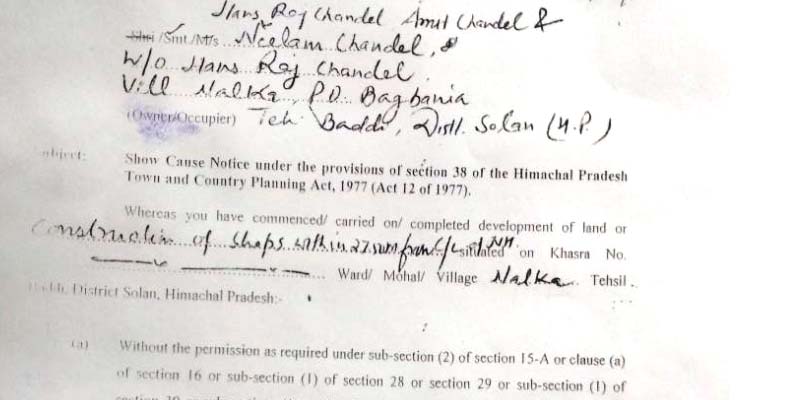 Hans Raj Chandel Amit Chandel &
Shri /Smt /M/s. Neelam Chandel, &
W/o Hans Raj Chandel.
Vill Nalka, P.O. Bagbania
(Owner/Occupier) Teh. Baddi, Distt. Solan (H.P.)
Subject: Show Cause Notice under the provisions of section 38 of the Himachal Pradesh
Town and Country Planning Act, 1977 (Act 12 of 1977).
Whereas you have commenced/ carried on/ completed development of land or
Construction of Shops within from C/L NH situated on Khasra No.
Ward/ Mohal/ Village Nalka Tehsil
District Solan, Himachal Pradesh:-
(a) Without the permission as required under sub-section (2) of section 15-A or clause (a)
of section 16 or sub-section (1) of section 28 or section 29 or sub-section (1) of